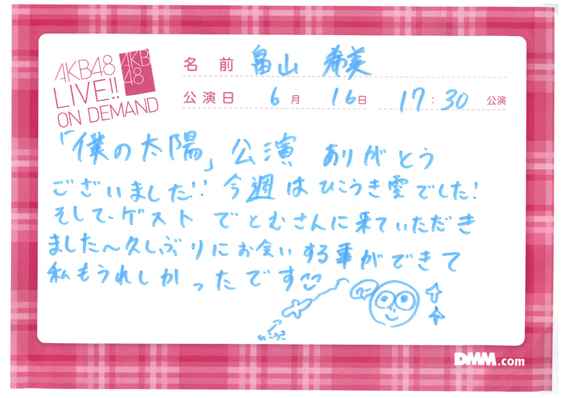 AKB48
LIVE!!
ON DEMAND
AKB
48
名前 畠山 希美
公演日 6月 16日 17:30 公演
「僕の太陽」公演 ありがとう
ございました!! 今週はひこうき雲でした!
そして、ゲストでとむさんに来ていただき
ました〜久しぶりにお会いする事ができて
私もうれしかったです
DMM.com